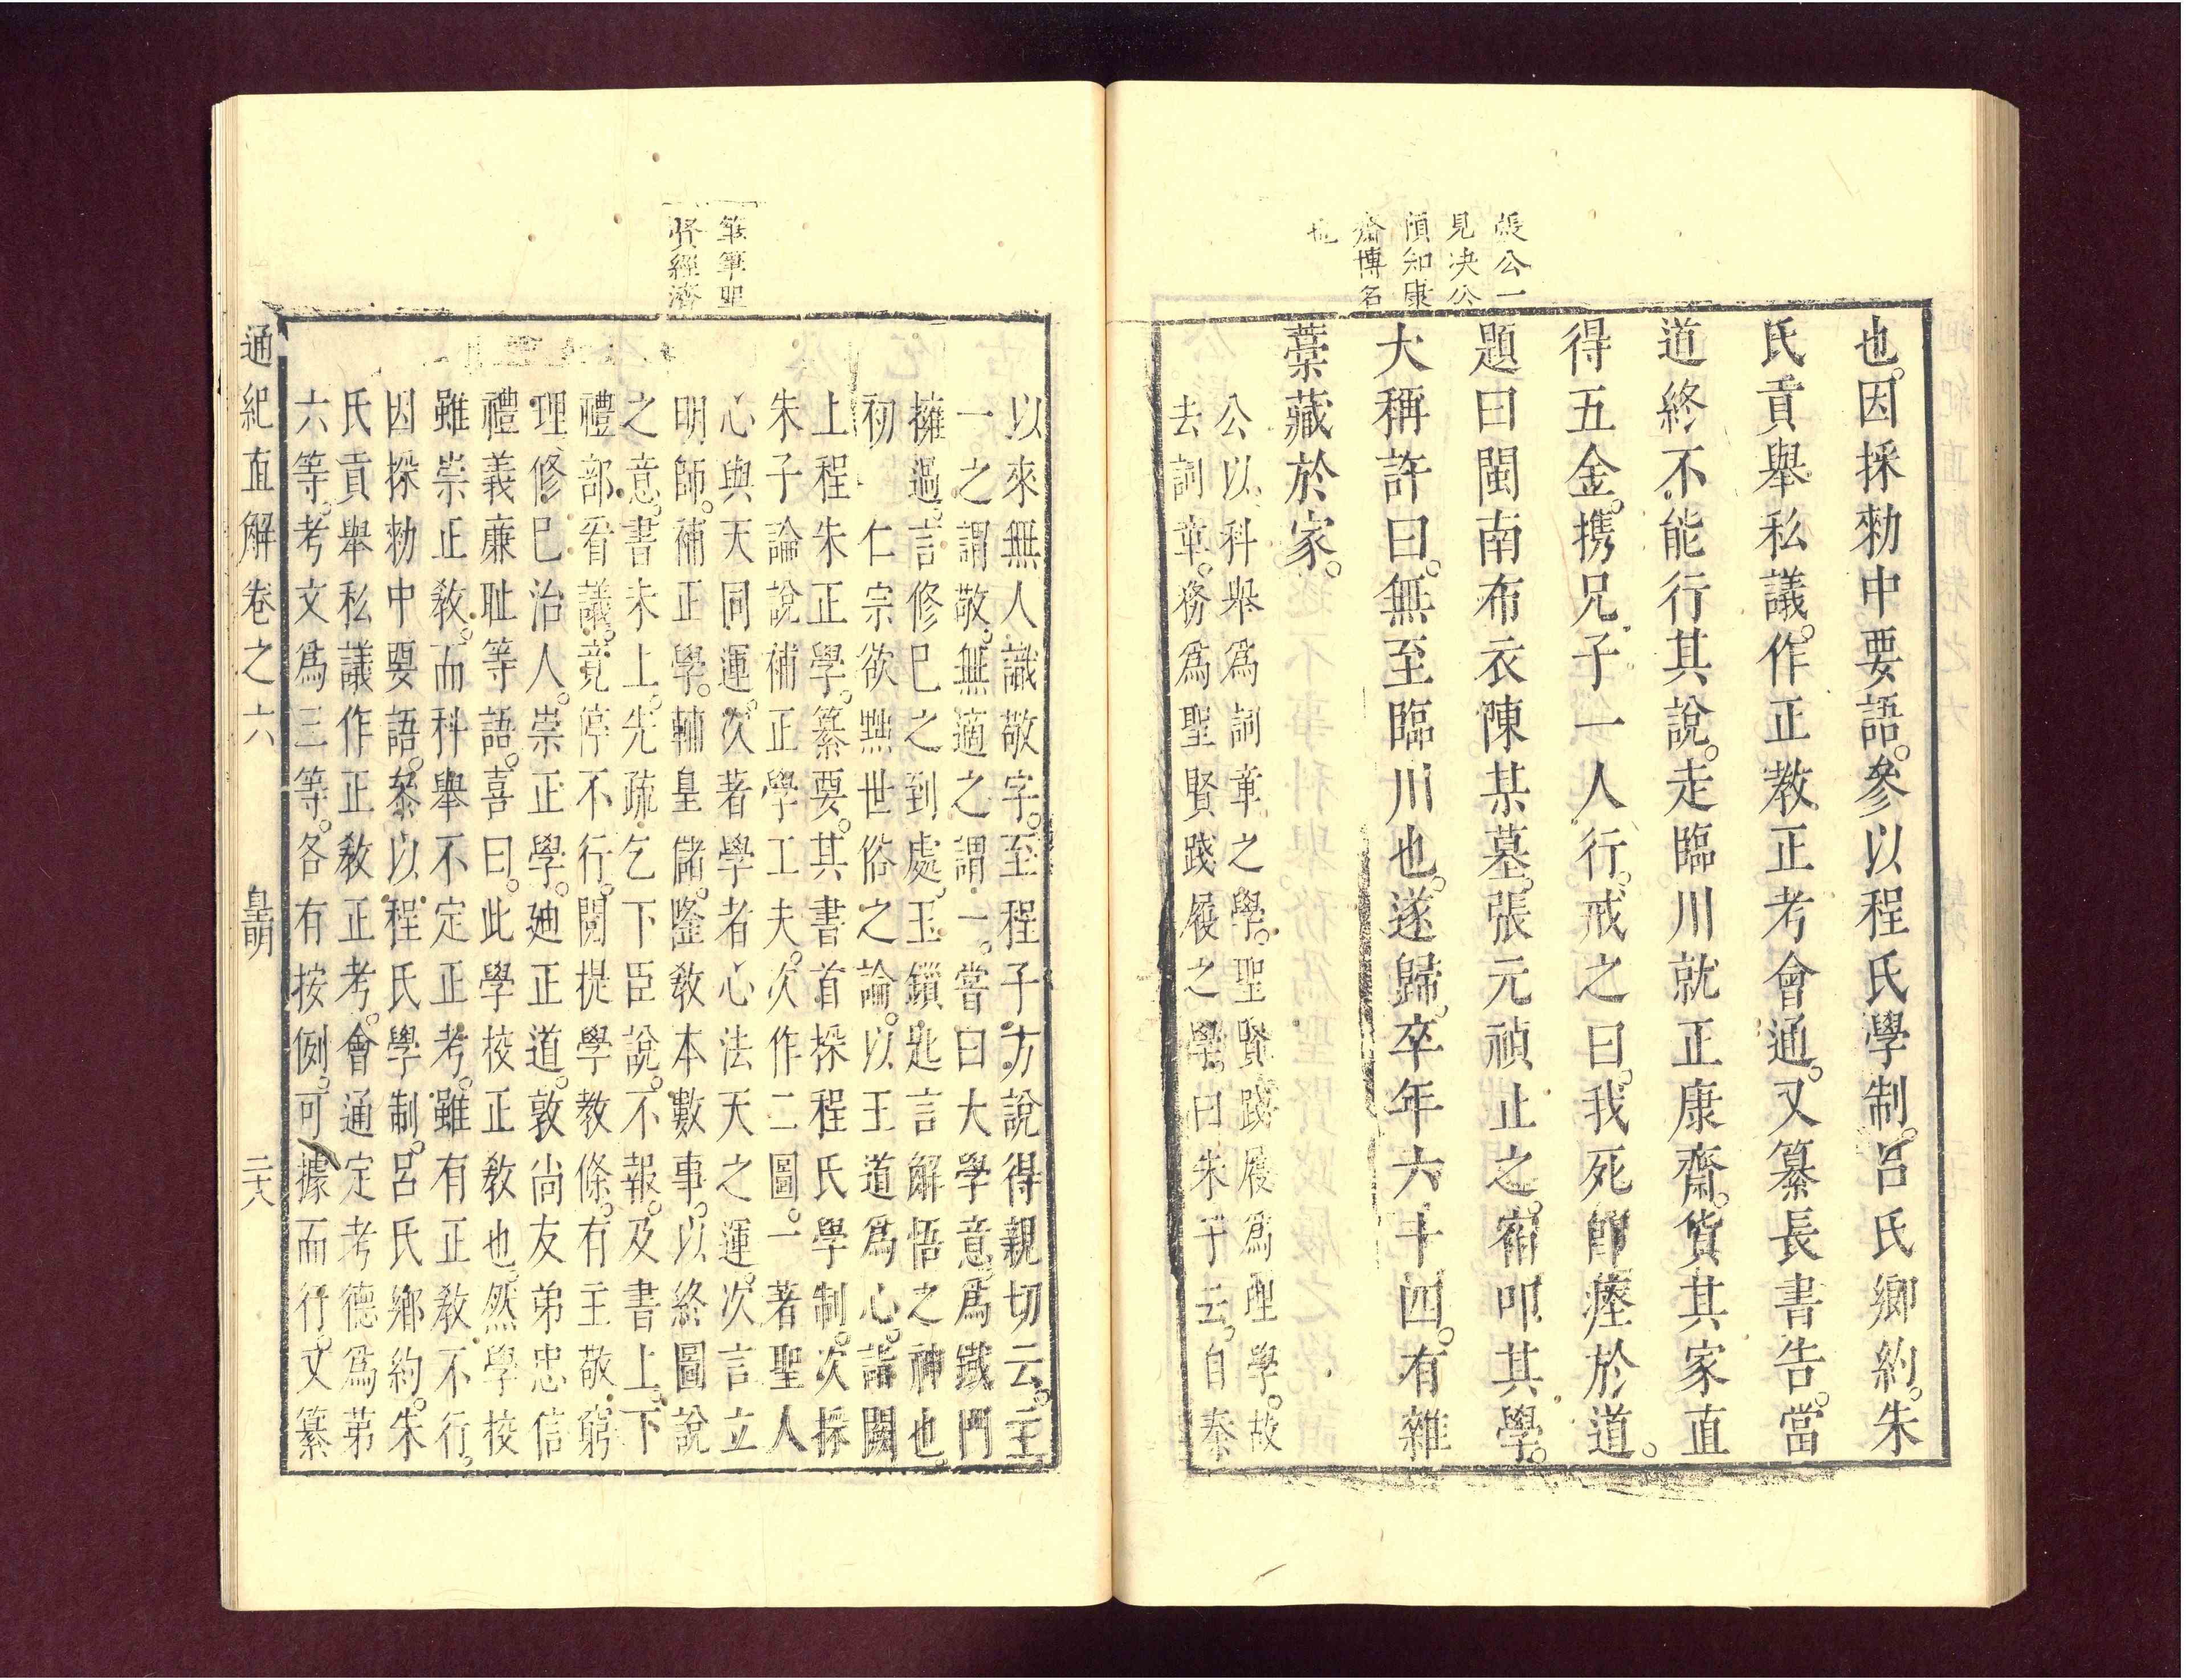 張公一
見决公
預知康
齋博名
也
也。因採勑中要語。參以程氏學制。呂氏鄉約。朱
氏貢舉私議。作正教正考會通。又纂長書告。當
道終不能行其說。走臨川就正康齋。貨其家直
得五金。携兄子一人行。戒之曰。我死卽瘞於道。
題曰閩南布衣陳某墓。張元禎止之。宿叩其學。
大稱許曰。無至臨川也。遂歸。卒年六十四。有雜
藁藏於家。
公以科舉爲詞章之學。聖賢踐履爲理學。故
去詞章。務爲聖賢踐履之學。曰朱子云。自秦
筆筆聖
賢經濟
以來無人識敬字。至程子方說得親切云。主
一之謂敬。無適之謂一。嘗曰大學意。爲鐵門
擁過。言修已之到處。玉鑰匙言解悟之神也。
初 仁宗欲黜世俗之論。以王道爲心。詣闕
上程朱正學。纂要。其書首採程氏學制。次採
朱子論說補正學工夫。次作二圖。一著聖人
心與天同運。次著學者心法天之運。次言立
明師。補正學。輔皇儲。隆敎本數事。以終圖說
之意。書未上。先疏乞下臣說。不報。及書上。下
禮部看議。竟停不行。閱提學教條。有主敬。窮
理修已治人。崇正學。廸正道。敦尚友弟忠信
禮義廉耻等語。喜曰。此學校正敎也。然學校
雖崇正敎。而科舉不定正考。雖有正敎不行。
因採勑中要語。叅以程氏學制。呂氏鄉約。朱
氏貢舉私議作正敎正考。會通定考德爲苐
六等。考文爲三等。各有按例。可據而行。又纂
通紀直解卷之六 皇明 二十八